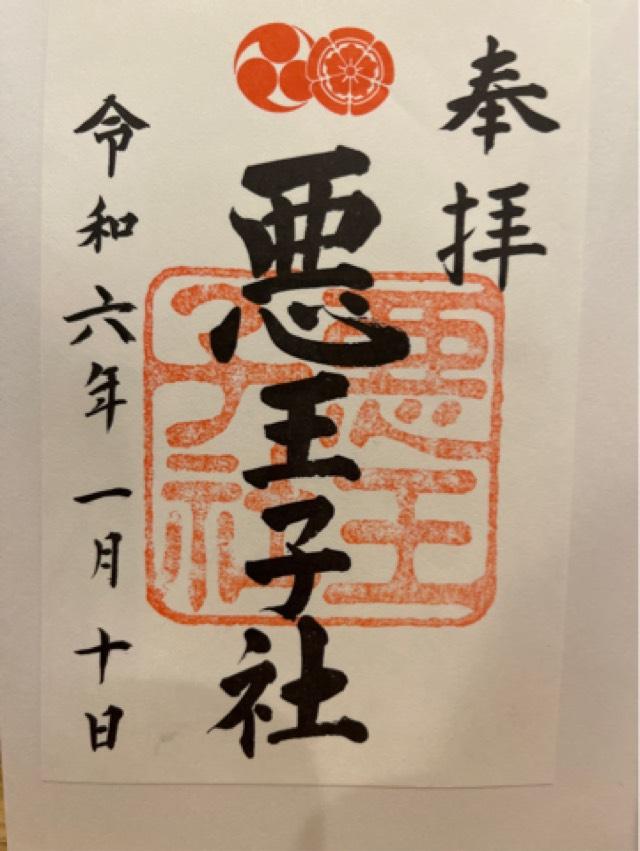 奉拝
悪王子社
悪王子社
令和六年一月十日